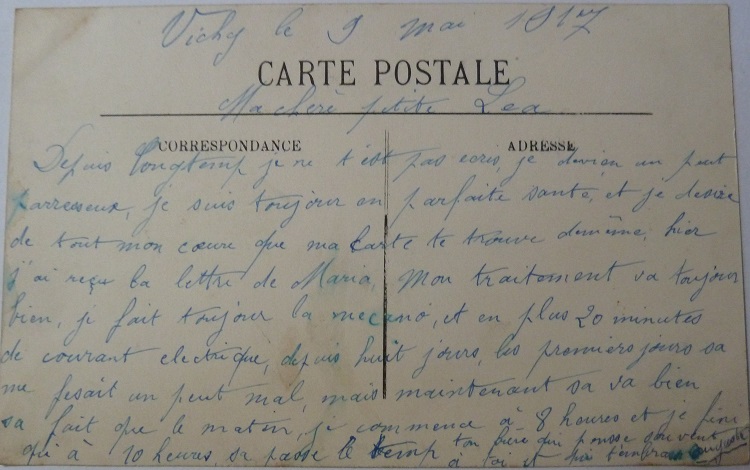 Vichy le 9 mai 1917
CARTE POSTALE
Ma chère petite Lea
CORRESPONDANCE
ADRESSE
Depuis longtemp je ne t'est pas ecris, je devien un peut
parresseux, je suis toujour en parfaite sante, et je desire
de tout mon cœure que ma carte te trouve demême, hier
j'ai reçu la lettre de Maria, Mon traitement va toujour
bien, je fait toujour la mecano, et en plus 20 minutes
de courant electrique, depuis huit jours, les premiers jours sa
me fesait un peut mal, mais maintenant sa va bien
sa fait que le matin, je commence à 8 heures et je fini
qu'à 10 heures, sa passe le temp ton frère qui pense souvent
à toi et qui t'embrasse Auguste